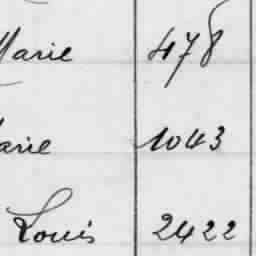 Marie 478
Marie 1043
Louis 2422